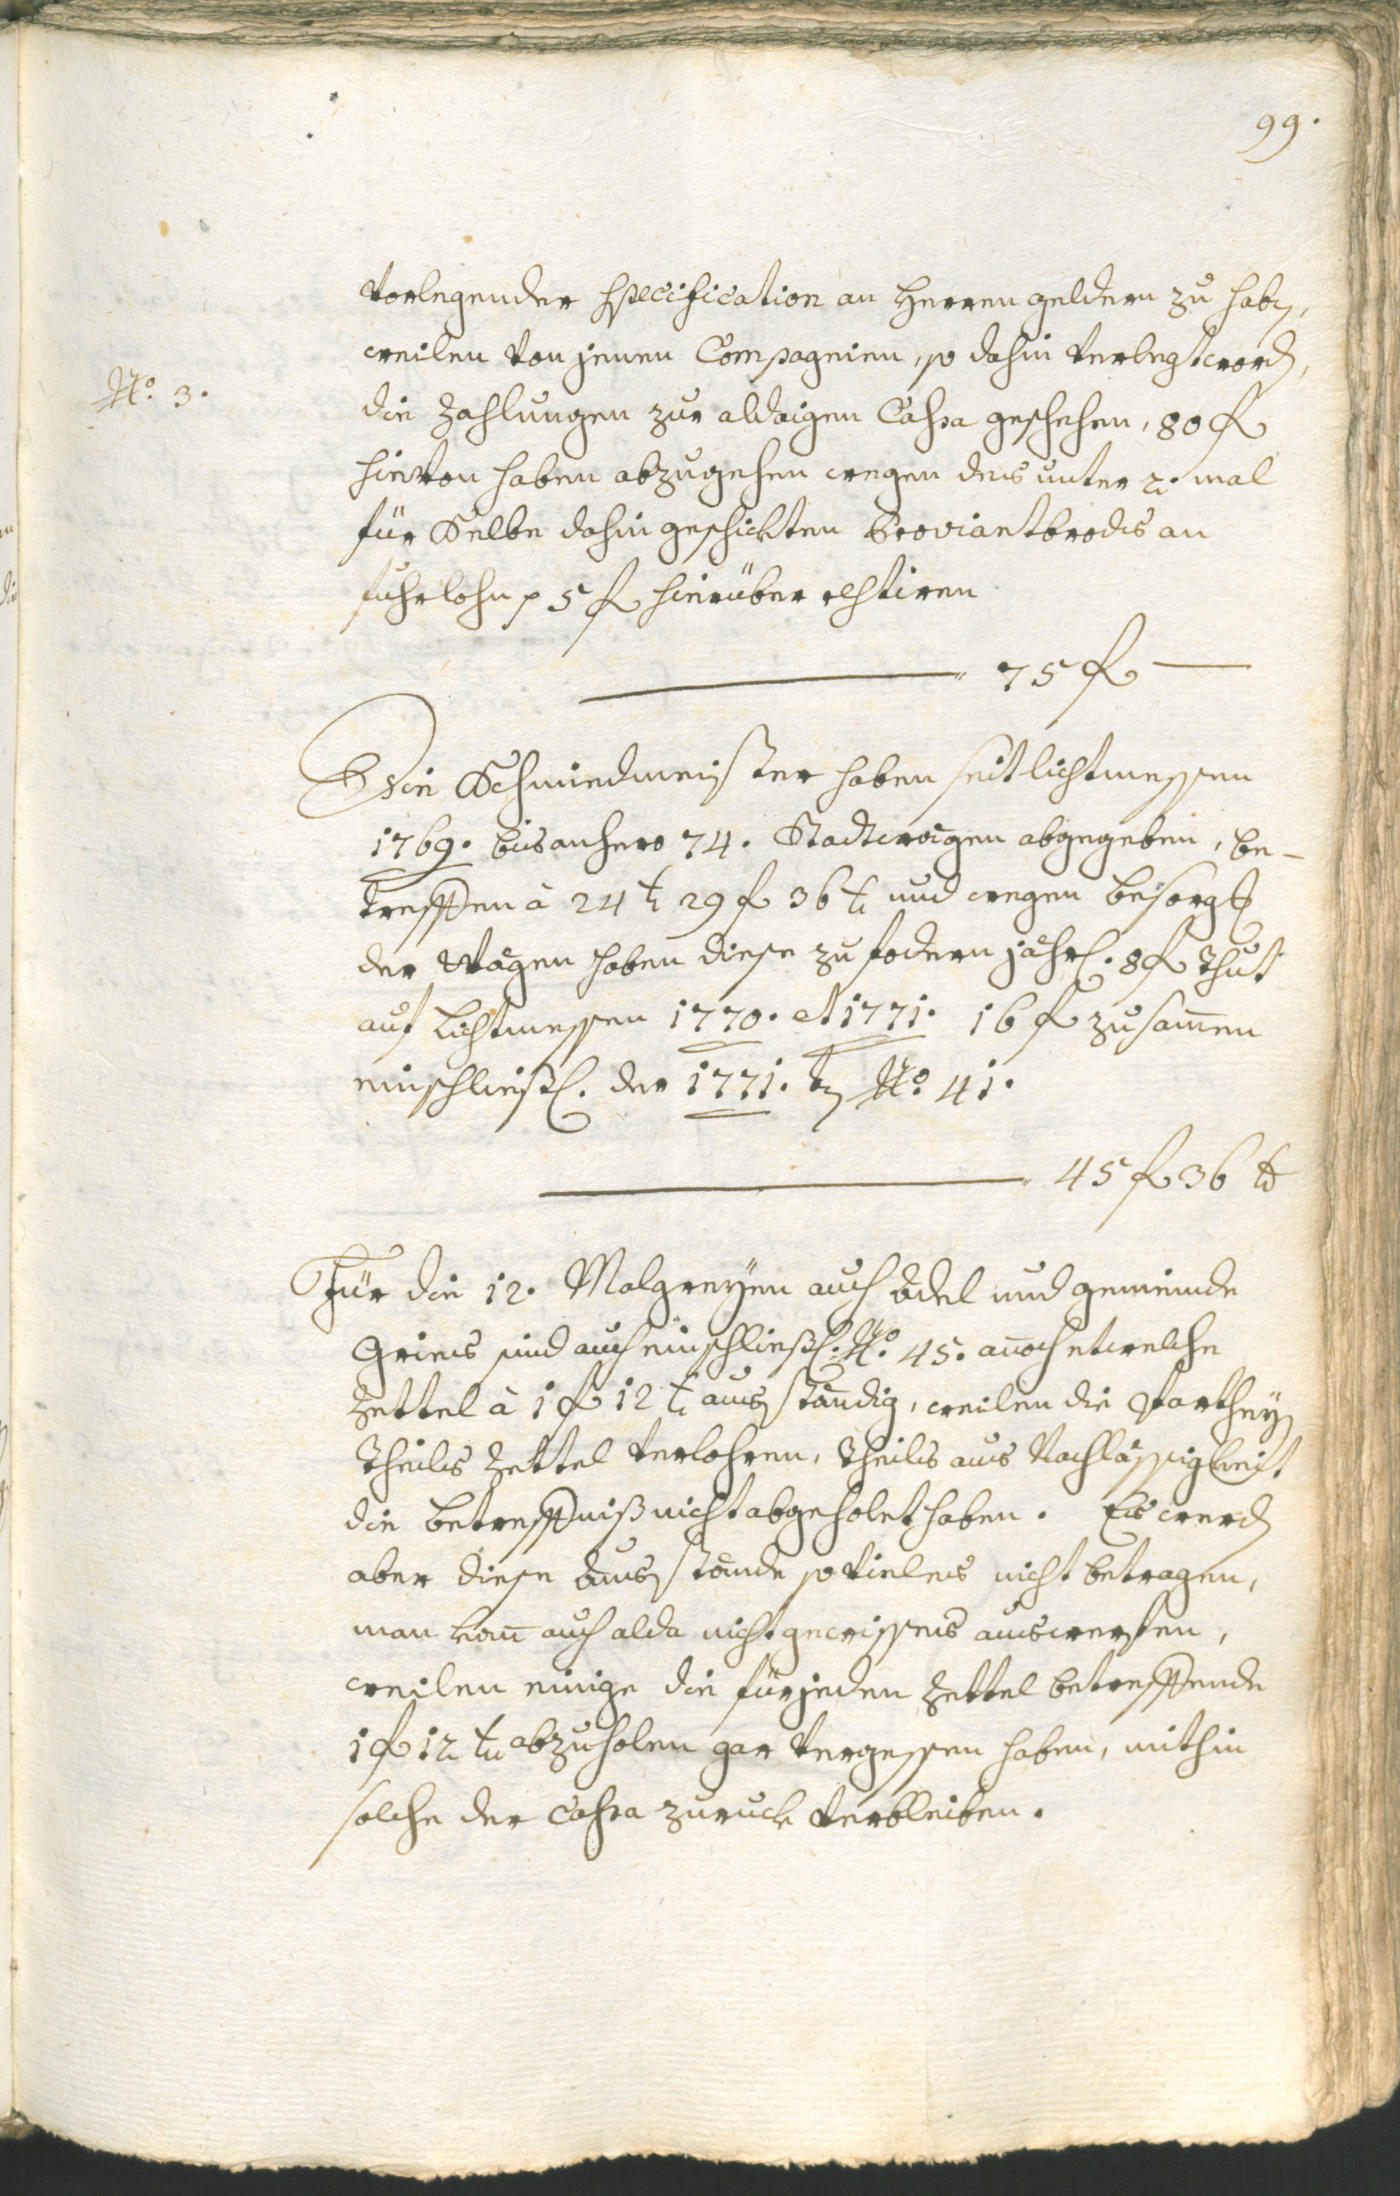 99.
vorlegender Specification an Herren geldern zu habn,
weilen von jenen Compagnien, so dahin verlegt word,
N.º 3.
die Zahlungen zur aldaigen Cassa geschehen, 80 f
hievon haben abzugehen wegen des unter 2. mal
für Selbe dahin geschickten Proviantbrods an
fuhrlohn p 5 f hierüber restiren
75 f
Die Schmiedmeister haben seit lichtmessen
1769. bis anhero 74. Stadtwägen abgegeben, be-
treffen à 24 k 29 f 36 k und wegen besorg
der Wägen haben diese zu fodern jährl. 8 f thut
auf Lichtmessen 1770. et 1771. 16 f zusamen
einschliesl. der 1771. N.º 41.
45 f 36 k
Für die 12. Malgreyen auch Adel und gemeinde
Gries sind auch einschließl. N.º 45. anoch etwelche
Zettel à 1 f 12 k ausständig, weilen die Partheyn
theils Zettel verlohren, theils aus Nachlässigkeit
die betreffniß nicht abgeholet haben. Es werd
aber diese Ausstände so vieles nicht betragen,
man kan auch alda nicht gewisses auswerfen,
weilen einige die für jeden Zettel betreffende
1 f 12 k abzuholen gar vergessen haben, mithin
solche der Cassa zuruck verbleiben.